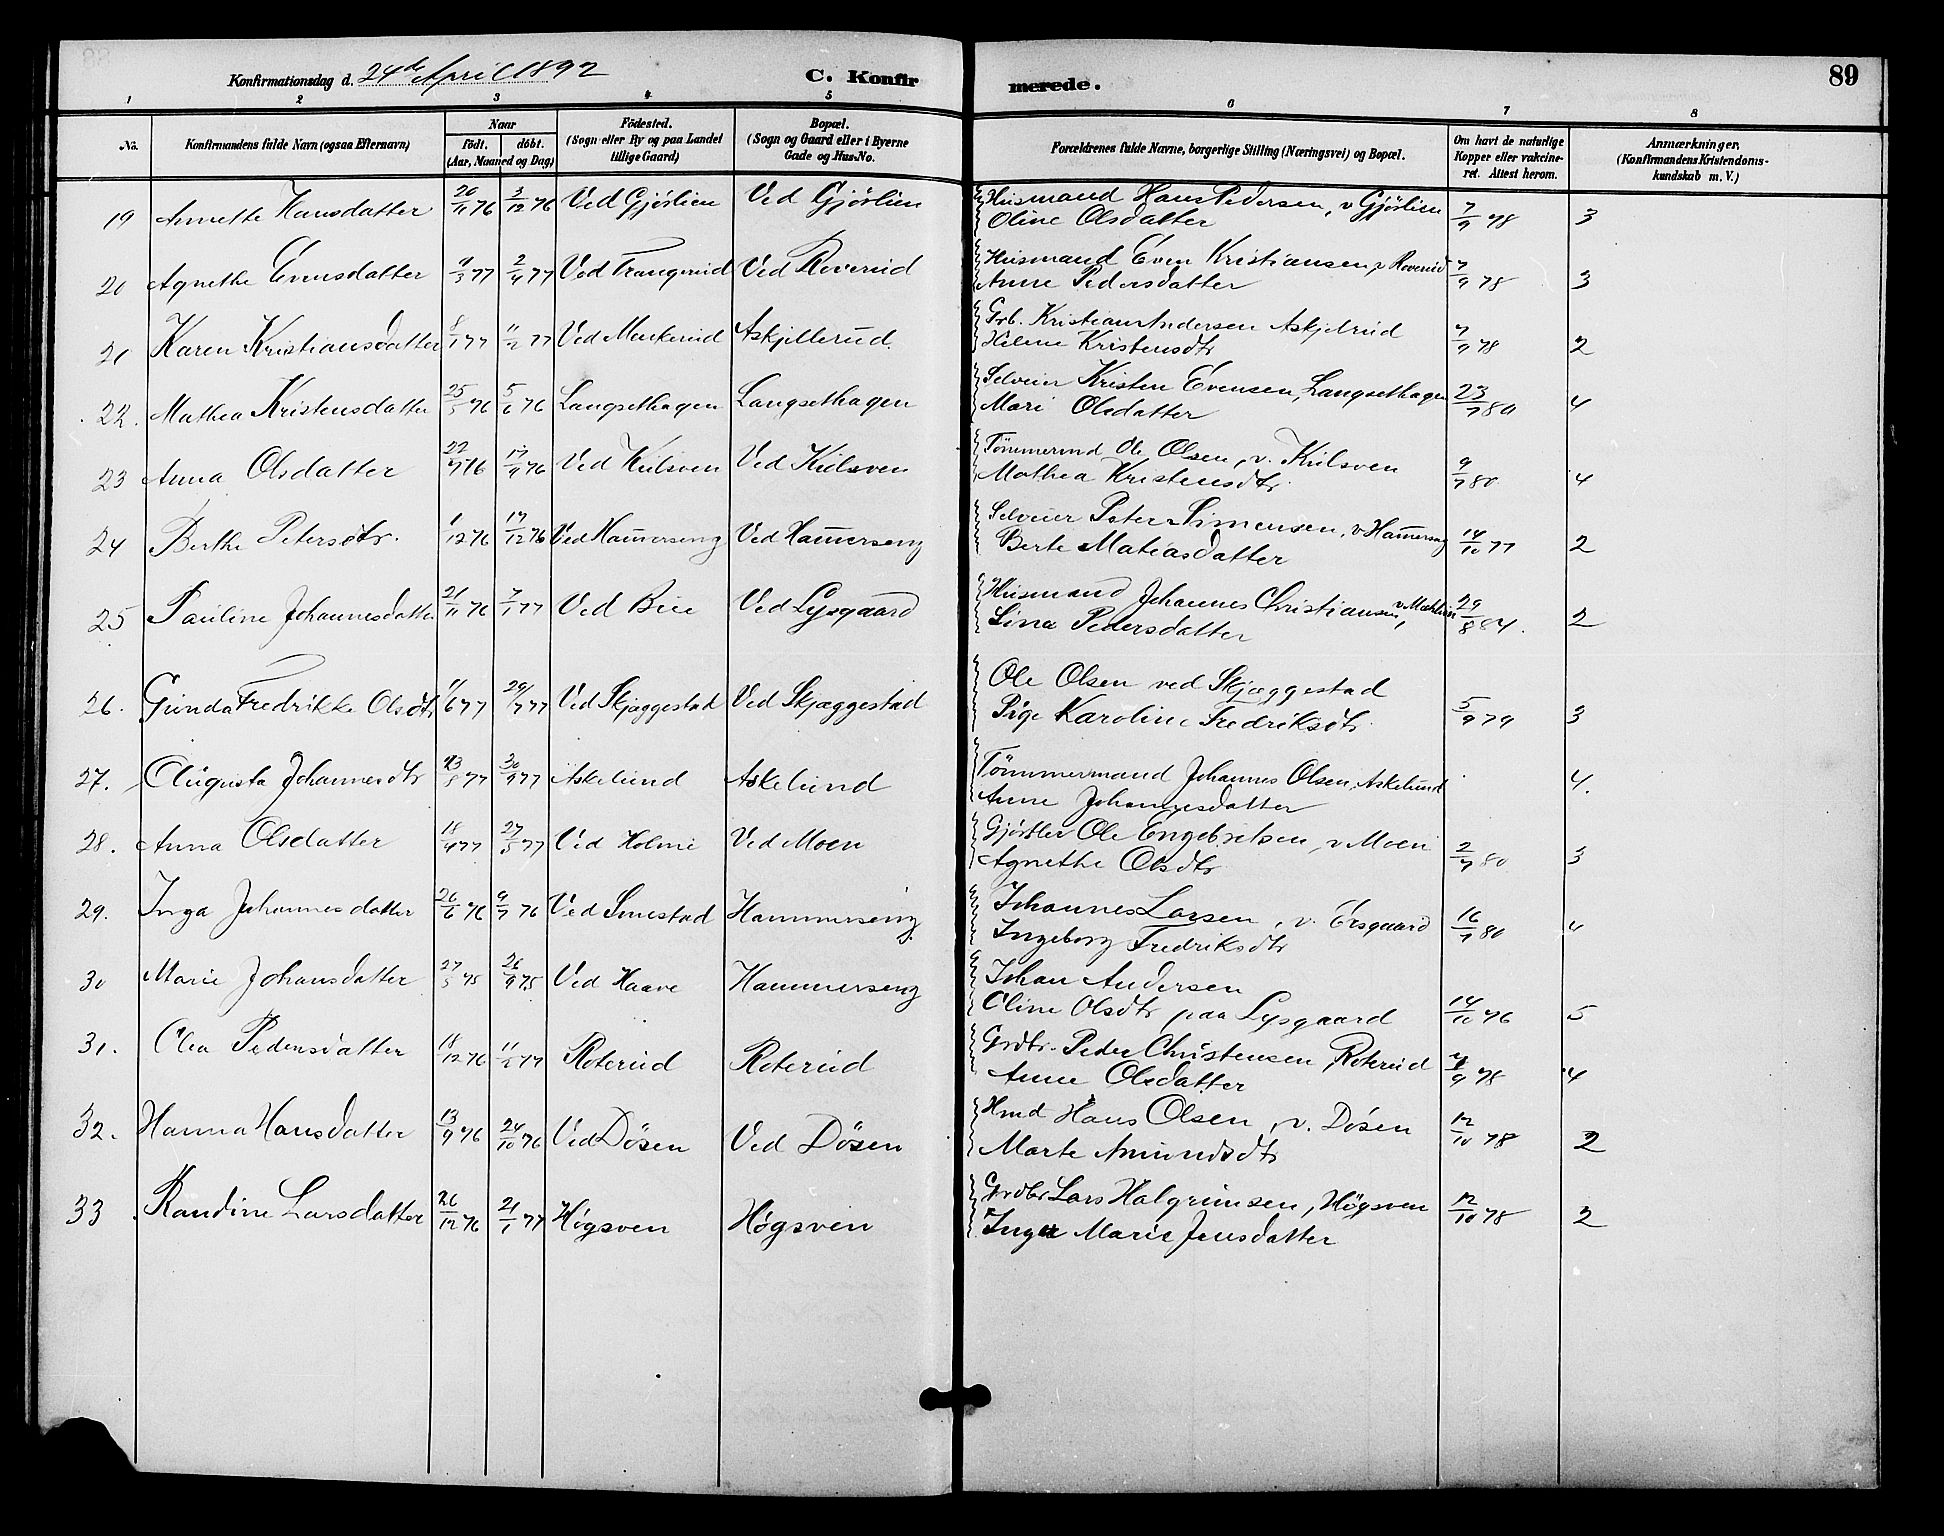 Konfirmationsdag d. 24de April 1892 C. Konfirmerede. 89
1 2 3 4 5 6 7 8
No. Konfirmandens fulde Navn (ogsaa Efternavn) Naar födt. döbt. (Aar, Maaned og Dag) Födested. (Sogn eller By og paa Landet tillige Gaard) Bopæl. (Sogn og Gaard eller i Byerne Gade og Hus-No. Forældrenes fulde Navne, borgerlige Stilling (Næringsvei) og Bopæl. Om havt de naturlige Kopper eller vakcineret. Attest herom. Anmærkninger. (Konfirmandens Kristendomskundskab m. V.)
19 Annette Hansdatter 20/11 76 3/12 76 Ved Gjörlien Ved Gjörlien Husmand Hans Pedersen, v Gjörlien 7/9 78 3
Oline Olsdatter
20 Agnethe Evensdatter /3 77 2/4 77 Ved Trangerud Ved Roverud Husmand Even Kristiansen, v Roverud 7/9 78 3
Anne Pedersdatter
21 Karen Kristiansdatter 8/1 77 11/2 77 Ved Munkerud Askjellerud. Grb. Kristian Andersen Askjelrud 7/9 78 2
Helene Kristensdtr
22. Mathea Kristensdatter 25/5 76 5/6 76 Langsethagen Langsethagen Selveier Kristen Evensen, Langsethagen 23/7 80 4
Mari Olsdatter
23 Anna Olsdatter 22/7 76 17/9 76 Ved Kulsven Ved Kulsven Tömmermd Ole Olsen, v. Kulsven 9/7 80 4
Mathea Kristensdtr.
24 Berthe Petersdtr. 1/12 76 17/12 76 Ved Ham̄erseng Ved Ham̄erseng Selveier Peter Simensen, v Ham̄erseng 14/10 77 2
Berte Matiasdatter
25 Pauline Johannesdatter 21/11 76 7/1 77 Ved Bue Ved Lysgaard Husmand Johannes Christiansen, v. Mæhlum 29/8 84. 2
Lina Pedersdatter
26. Gunda Fredrikke Olsdtr 11/6 77 29/7 77 Ved Skjæggestad Ved Skjæggestad Ole Olsen ved Skjæggestad 5/9 79 3
Pige Karoline Fredriksdtr.
27. Augusta Johannesdtr 23/8 77 30/9 77 Askelund Askelund Tömmermand Johannes Olsen, Askelund 4.
Anne Johannesdatter
28. Anna Olsdatter 18/4 77 27/5 77 Ved Holme Ved Moen Gjörtler Ole Engebretsen, v Moen 2/7 80 3
Agnethe Olsdtr
29. Inga Johannesdatter 26/6 76 9/7 76 Ved Smestad Hammerseng Johannes Larsen, v. Ersgaard 16/7 80 4
Ingeborg Fredriksdtr
30 Marie Johansdatter 27/5 75 26/9 75 Ved Haave Hammerseng Johan Andersen
Oline Olsdtr paa Lysgaard 14/10 76 5
31. Olea Pedersdatter 18/12 76 11/2 77 Roterud Roterud Grdbr. Peder Christensen, Roterud 7/9 78 4
Anne Olsdatter
32. Hanna Hansdatter 13/9 76 24/10 76 Ved Dösen Ved Dösen Hmd Hans Olsen, v. Dösen 12/10 78 2
Marte Amundsdtr
33. Randine Larsdatter 26/12 76 21/1 77 Högsven Högsven Grdbr Lars Halgrimsen, Högsven 12/10 78 2
Inga Marie Jensdatter